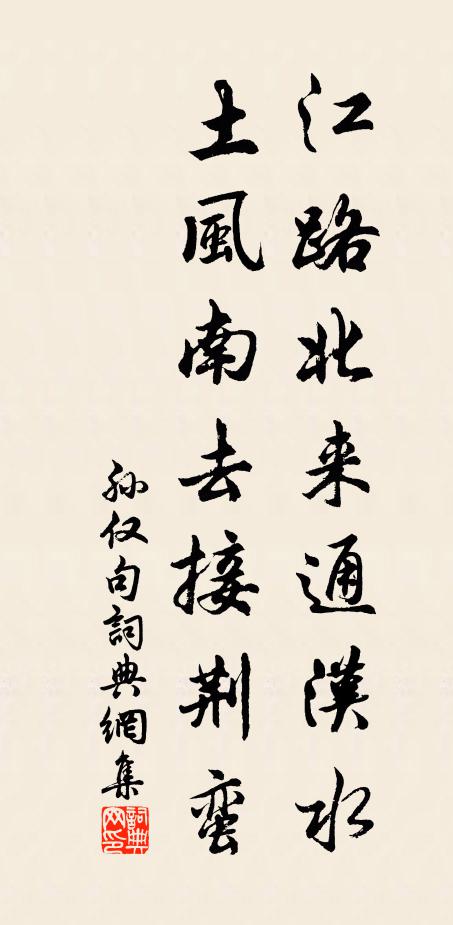 江路北来通漢水
土風南去接荆蛮
孙仅句詞典網集
詞典网印